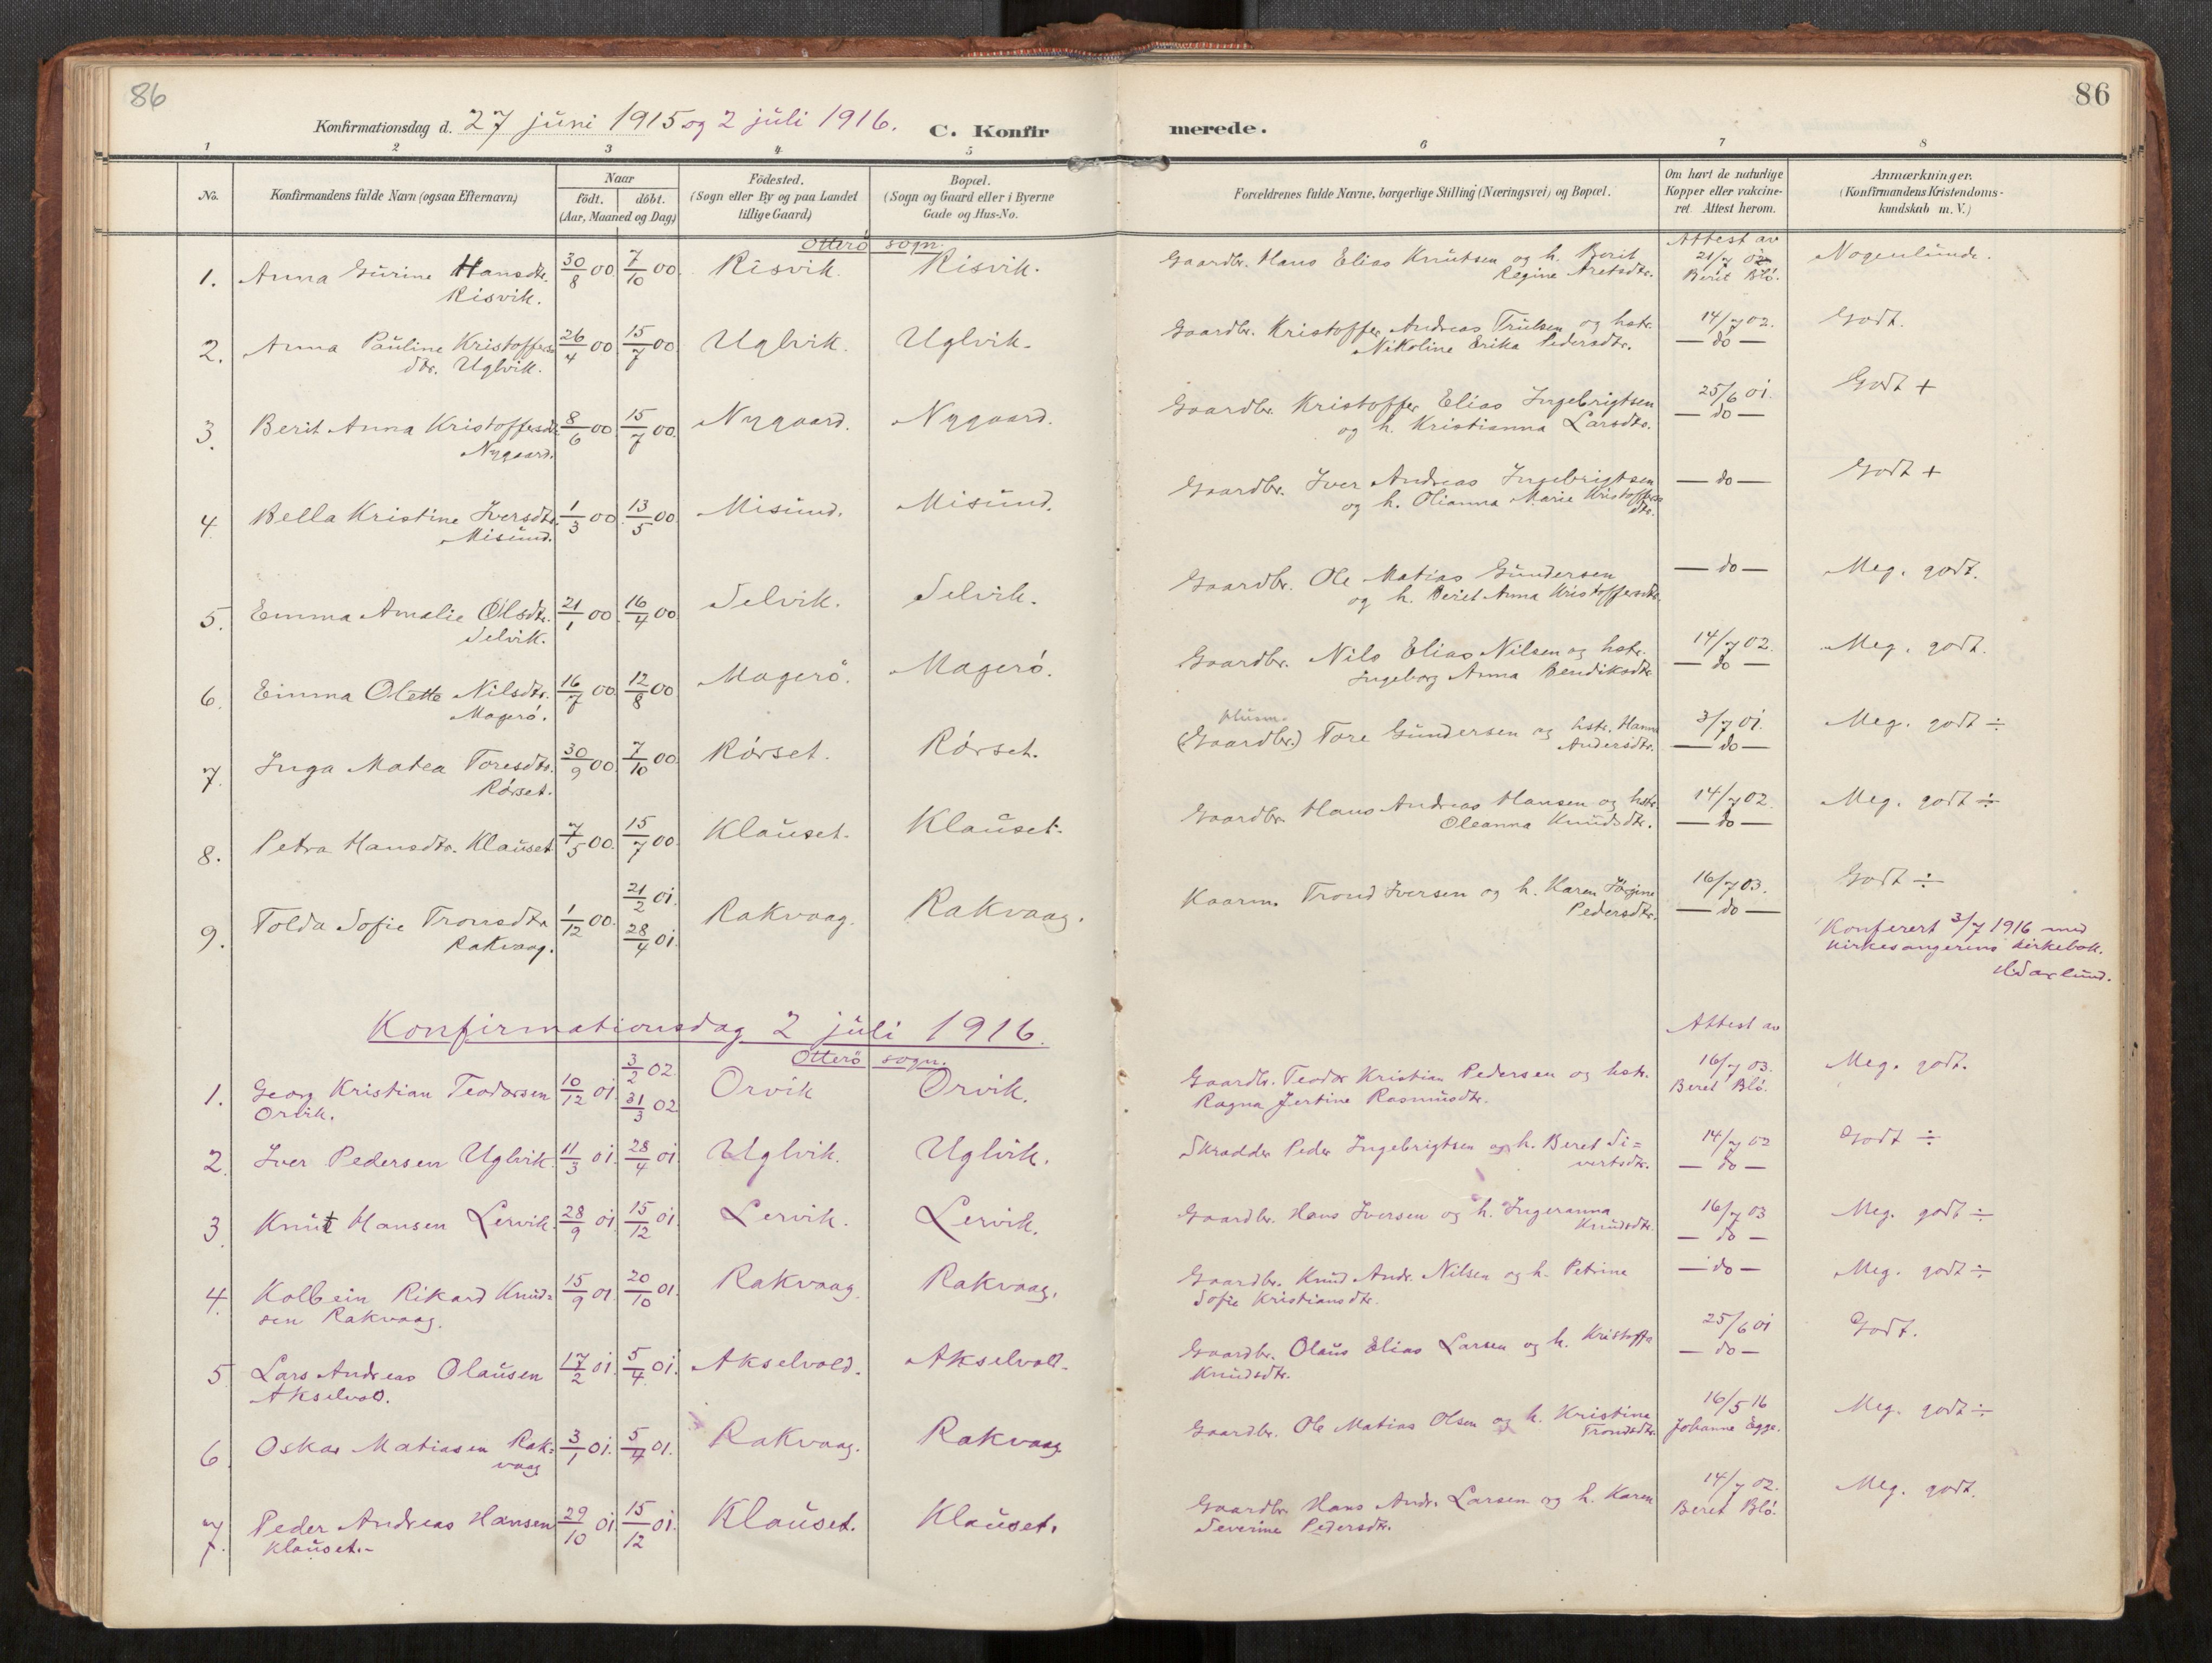 86
Konfirmationsdag d. 27 juni 1915 og 2 juli 1916. C. Konfirmerede. 86
1 2 3 4 5 6 7 8
No.
Konfirmandens fulde Navn (ogsaa Efternavn)
Naar
födt. döbt.
(Aar, Maaned og Dag)
Födested.
(Sogn eller By og paa Landet
tillige Gaard)
Bopæl.
(Sogn og Gaard eller i Byerne
Gade og Hus-No.
Forældrenes fulde Navne, borgerlige Stilling (Næringsvei) og Bopæl.
Om havt de naturlige
Kopper eller vaccine-
ret. Attest herom.
Anmærkninger.
(Konfirmandens Kristendoms-
kundskab m. V.)
Otterö sogn.
Attest av
1. Anna Gurine Hansdtr. 30/8 00. 7/10 00. Risvik. Risvik. Gaardbr. Hans Elias Knutsen og h. Berit 21/7 02 Nogenlunde.
Risvik. Regine Aretsdtr. Berit Blö.
2. Anna Pauline Kristoffers 26/4 00 15/7 00. Uglvik. Uglvik. Gaardbr. Kristoffer Andreas Trulsen og hstr. 14/7 02. Godt.
dtr. Uglvik. Nikoline Erika Pedersdtr. — do —
3. Berit Anna Kristoffersdtr. 8/6 00. 15/7 00. Nygaard. Nygaard. Gaardbr. Kristoffer Elias Ingebrigtsen 25/6 01. Godt +
Nygaard. og h. Kristianna Larsdtr. — do —
4. Bella Kristine Iversdtr. 1/3 00. 13/5 00. Misund. Misund. Gaardbr. Iver Andreas Ingebrigtsen — do — Godt +
Misund. og h. Olianna Marie Kristoffers
dtr.
5. Emma Amalie Olsdtr. 21/1 00. 16/4 00. Selvik. Selvik. Gaardbr. Ole Matias Gundersen — do — Meg. godt.
Selvik. og h. Berit Anna Kristoffersdtr.
6. Emma Olette Nilsdtr. 16/7 00. 12/8 00 Magerö. Magerö. Gaardbr. Nils Elias Nilsen og hstr. 14/7 02. Meg. godt.
Magerö. Ingeborg Anna Bendiksdtr. — do —
7. Inga Matea Toresdtr. 30/9 00. 7/10 00. Rörset. Rörset. (Gaardbr.) Tore Gundersen og hstr. Hanna 3/7 01. Meg. godt ÷
Rörset. Andersdtr. — do —
8. Petra Hansdtr. Klauset 7/5 00. 15/7 00. Klauset. Klauset. Gaardbr. Hans Andreas Hansen og hstr. 14/7 02. Meg. godt ÷
Oleanna Knudsdtr. — do —
21/2 01.
9. Tolda Sofie Tronsdtr. 1/12 00. 28/4 01. Rakvaag. Rakvaag. Kaarm. Trond Iversen og h. Karen Jörgine 16/7 03. Godt ÷
Rakvaag. Pedersdtr. — do —
Konferert 3/7 1916 med
kirkesangerens kirkebok.
Konfirmationsdag 2 juli 1916.
Otterö sogn.
Attest av
3/2 02.
1. Georg Kristian Teodorsen 10/12 01. 31/3 02 Orvik Orvik. Gaardbr. Teodor Kristian Pedersen og hstr. 16/7 03. Meg. godt.
Orvik. Ragna Jertine Rasmusdtr. Beret Blö.
2. Iver Pedersen Uglvik. 11/3 01. 28/4 01. Uglvik. Uglvik. Skrædder Peder Ingebrigtsen og h. Beret Si= 14/7 02 Godt ÷
vertsdtr. — do —
3. Knut Hansen Lervik. 28/9 01. 15/12 01. Lervik. Lervik. Gaardbr. Hans Iversen og h. Ingeranna 16/7 03 Meg. godt ÷
Knudsdtr. — do —
4. Kolbein Rikard Knud= 15/9 01. 20/10 01. Rakvaag. Rakvaag. Gaardbr. Knud Andr. Nilsen og h. Petrine — do — Meg. godt ÷
sen Rakvaag. Sofie Kristiansdtr.
5. Lars Andreas Olausen 17/2 01. 5/4 01. Akselvold. Akselvold. Gaardbr. Olaus Elias Larsen og h. Kristoffa 25/6 01 Godt.
Akselvold. Knudsdtr. — do —
6. Oskar Matiasen Rak= 3/1 01. 5/4 01. Rakvaag. Rakvaag Gaardbr. Ole Matias Olsen og h. Kristine 16/5 16 Meg. godt ÷
vaag Trondsdtr. Johanne Egge.
7. Peder Andreas Hansen 29/10 01. 15/12 01. Klauset. Klauset. Gaardbr. Hans Andr. Larsen og h. Karen 14/7 02. Meg. godt.
Klauset.- Severine Pedersdtr. Beret Blö.